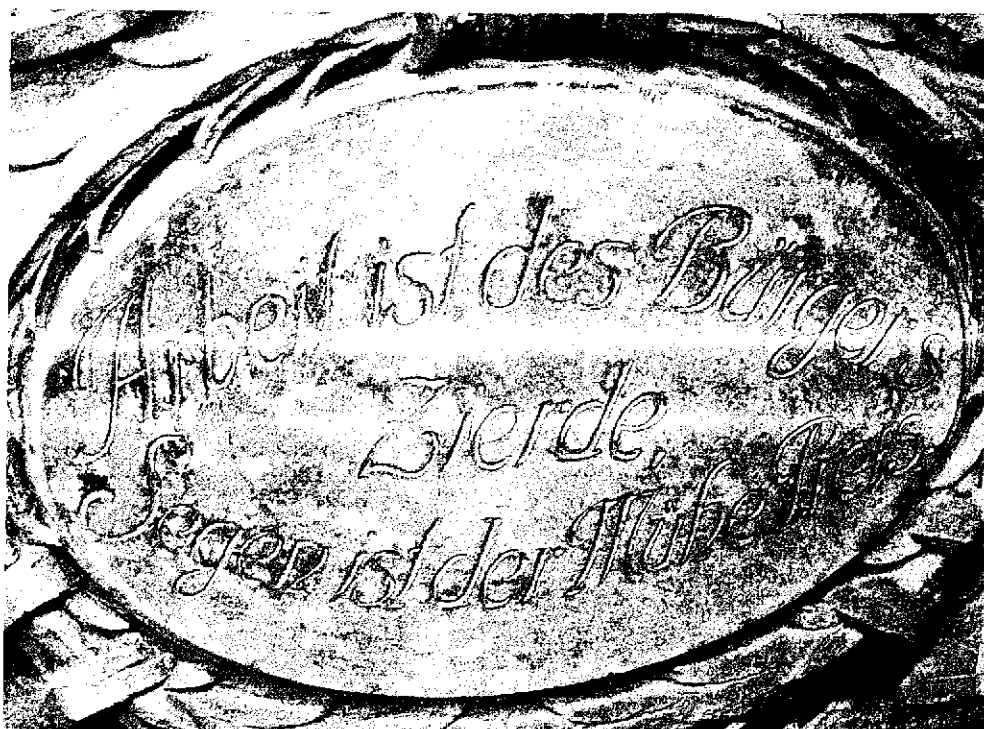 Arbeit ist des Bürgers
Zierde,
Segen ist der Mühe Preis